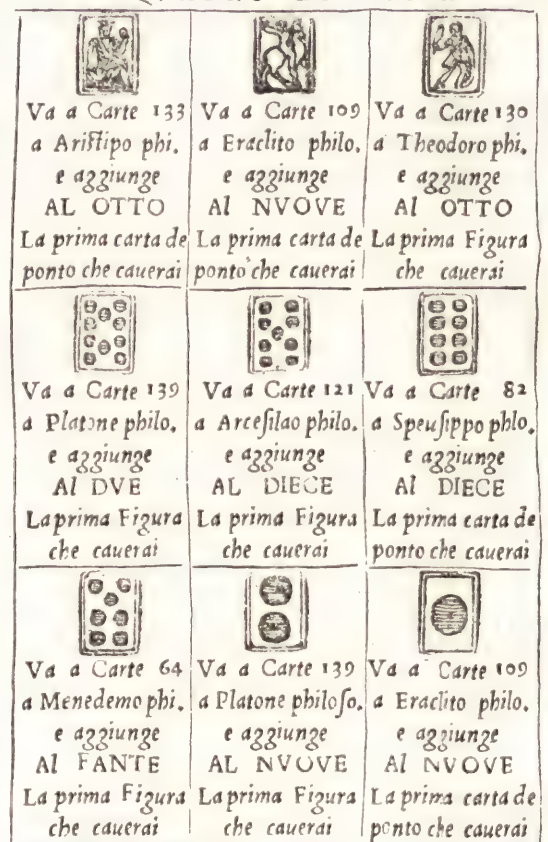 Va a Carte 133
a Ariſtipo phi.
e aggiunge
AL OTTO
La prima carta de
ponto che cauerai
Va a Carte 109
a Eraclito philo.
e aggiunge
Al NVOVE
La prima carta de
ponto che cauerai
Va a Carte 130
a Theodoro phi.
e aggiunge
Al OTTO
La prima Figura
che cauerai
Va a Carte 139
a Platone philo.
e aggiunge
Al DVE
La prima Figura
che cauerai
Va a Carte 121
a Arceſilao philo.
e aggiunge
AL DIECE
La prima Figura
che cauerai
Va a Carte 82
a Speuſippo phlo.
e aggiunge
Al DIECE
La prima carta de
ponto che cauerai
Va a Carte 64
a Menedemo phi.
e aggiunge
Al FANTE
La prima Figura
che cauerai
Va a Carte 139
a Platone philoſo.
e aggiunge
AL NVOVE
La prima Figura
che cauerai
Va a Carte 109
a Eraclito philo.
e aggiunge
Al NVOVE
La prima carta de
ponto che cauerai